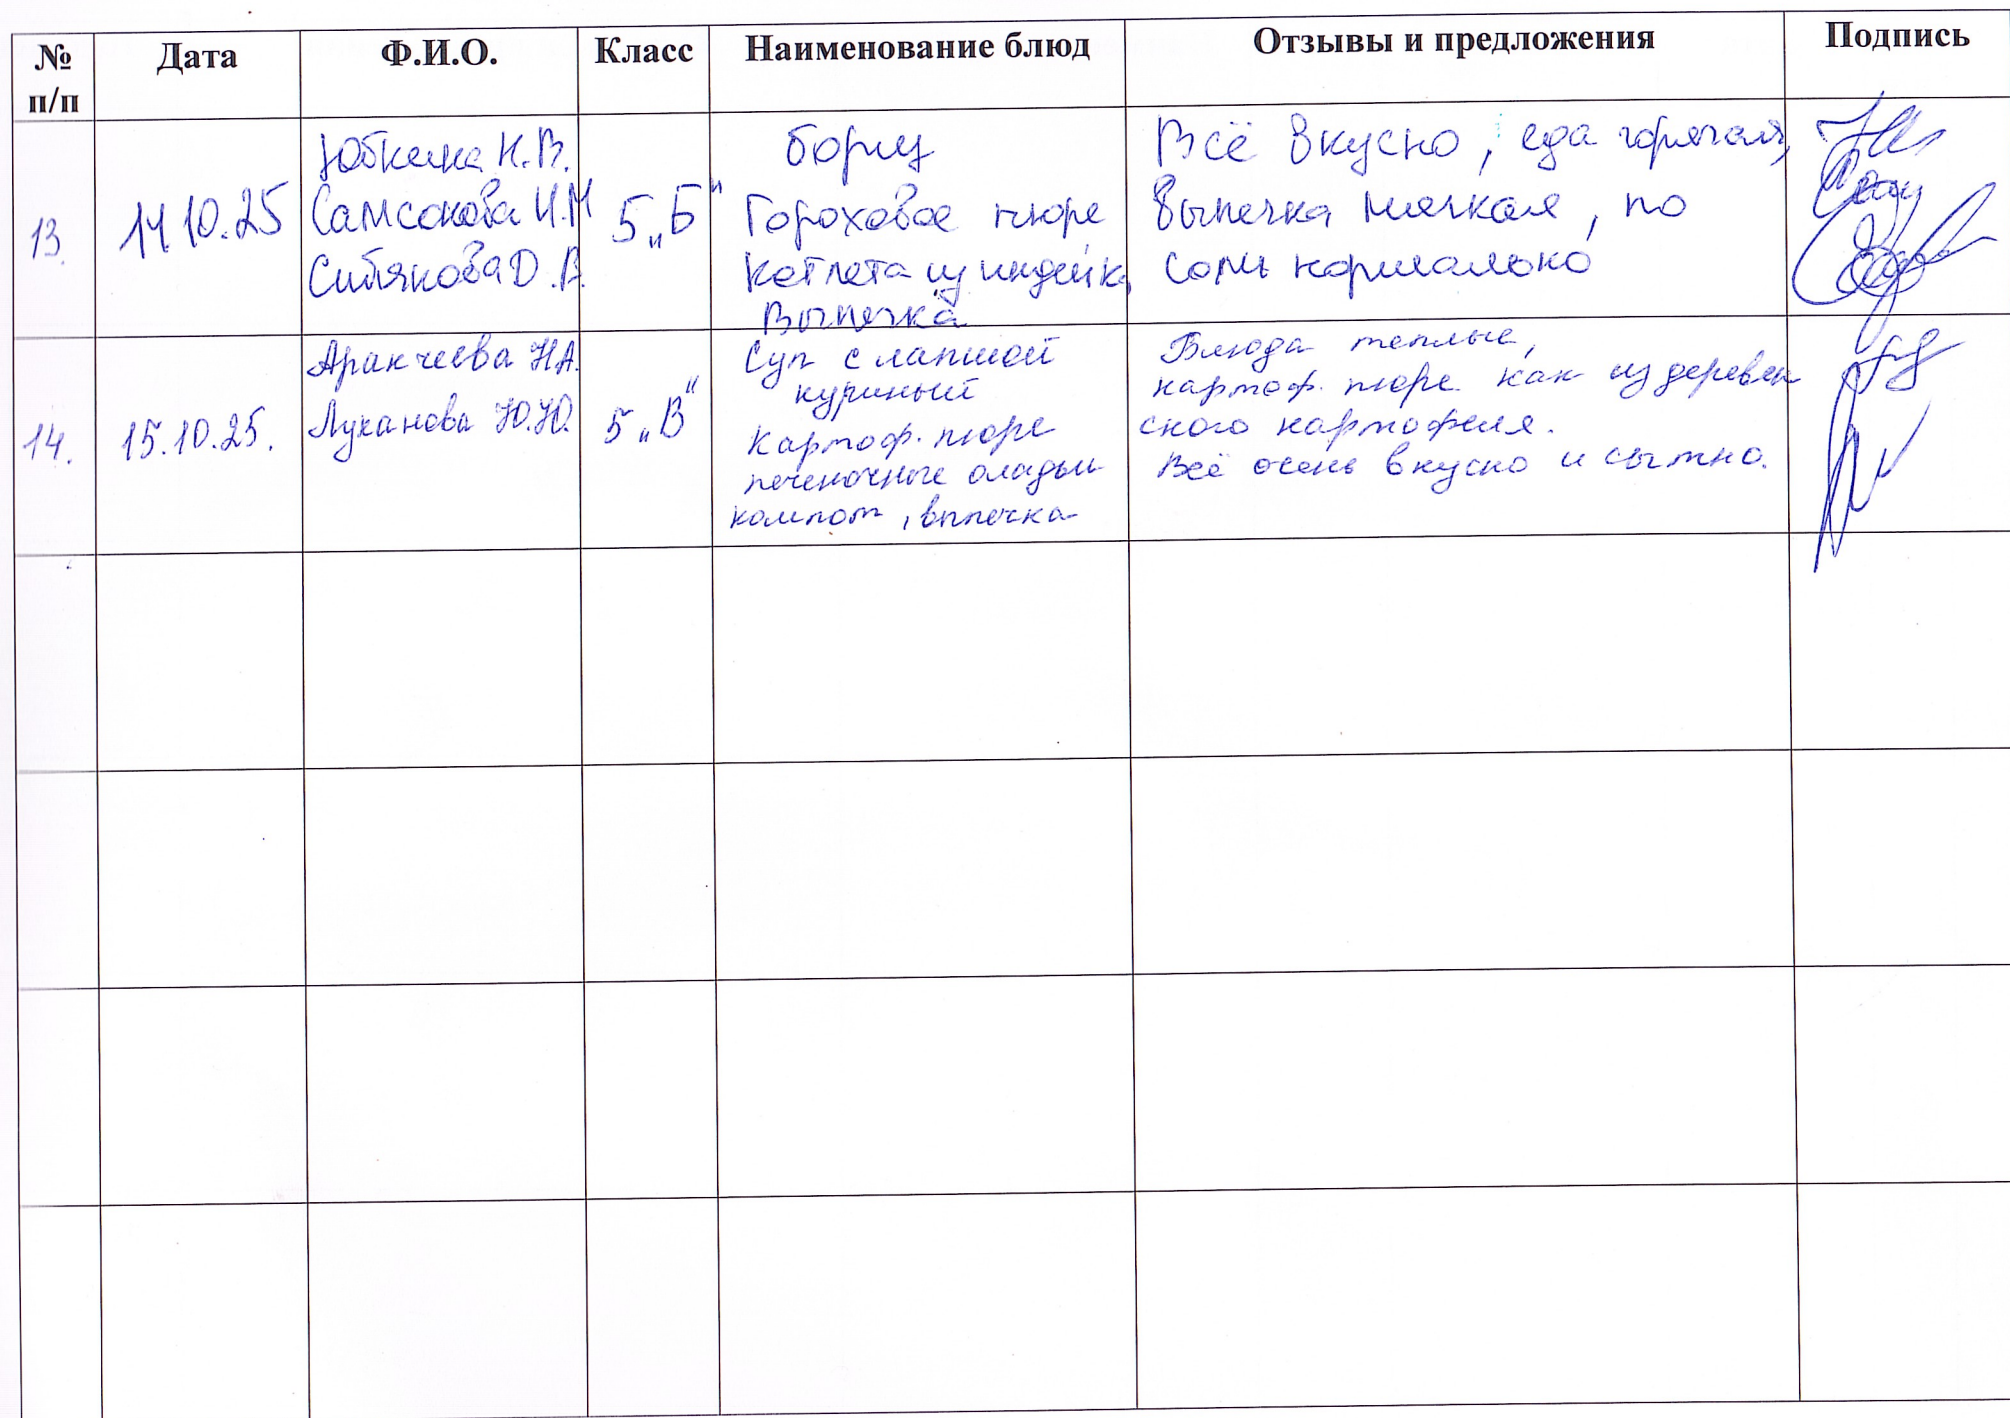 № п/п Дата Ф.И.О. Класс Наименование блюд Отзывы и предложения Подпись
13. 14.10.25 Юбкина Н.В. Самсонова И.М Сибякова Д.А. 5 „Б"
борщ
Гороховое пюре
Котлета из индейки,
Выпечка
Всё вкусно, еда горячая,
выпечка мягкая, по
соли нормально
14. 15.10.25. Аракчеева Н.А. Луканова Ю.Ю. 5 „В"
Суп с лапшой
куриный
Картоф. пюре
печеночные оладьи
компот, выпечка
Блюда теплые,
картоф. пюре как из деревен
ского картофеля.
Всё очень вкусно и сытно.